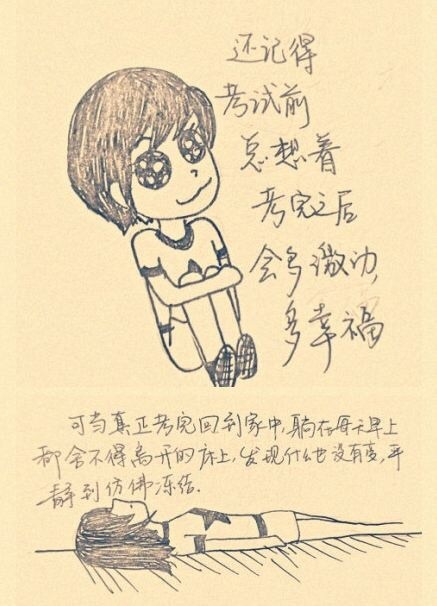 还记得
考试前
总想着
考完之后
会多激动,
多幸福
可当真正考完回到家中,躺在每天早上
都舍不得离开的床上,发现什么也没有变,平
静到仿佛冻结.